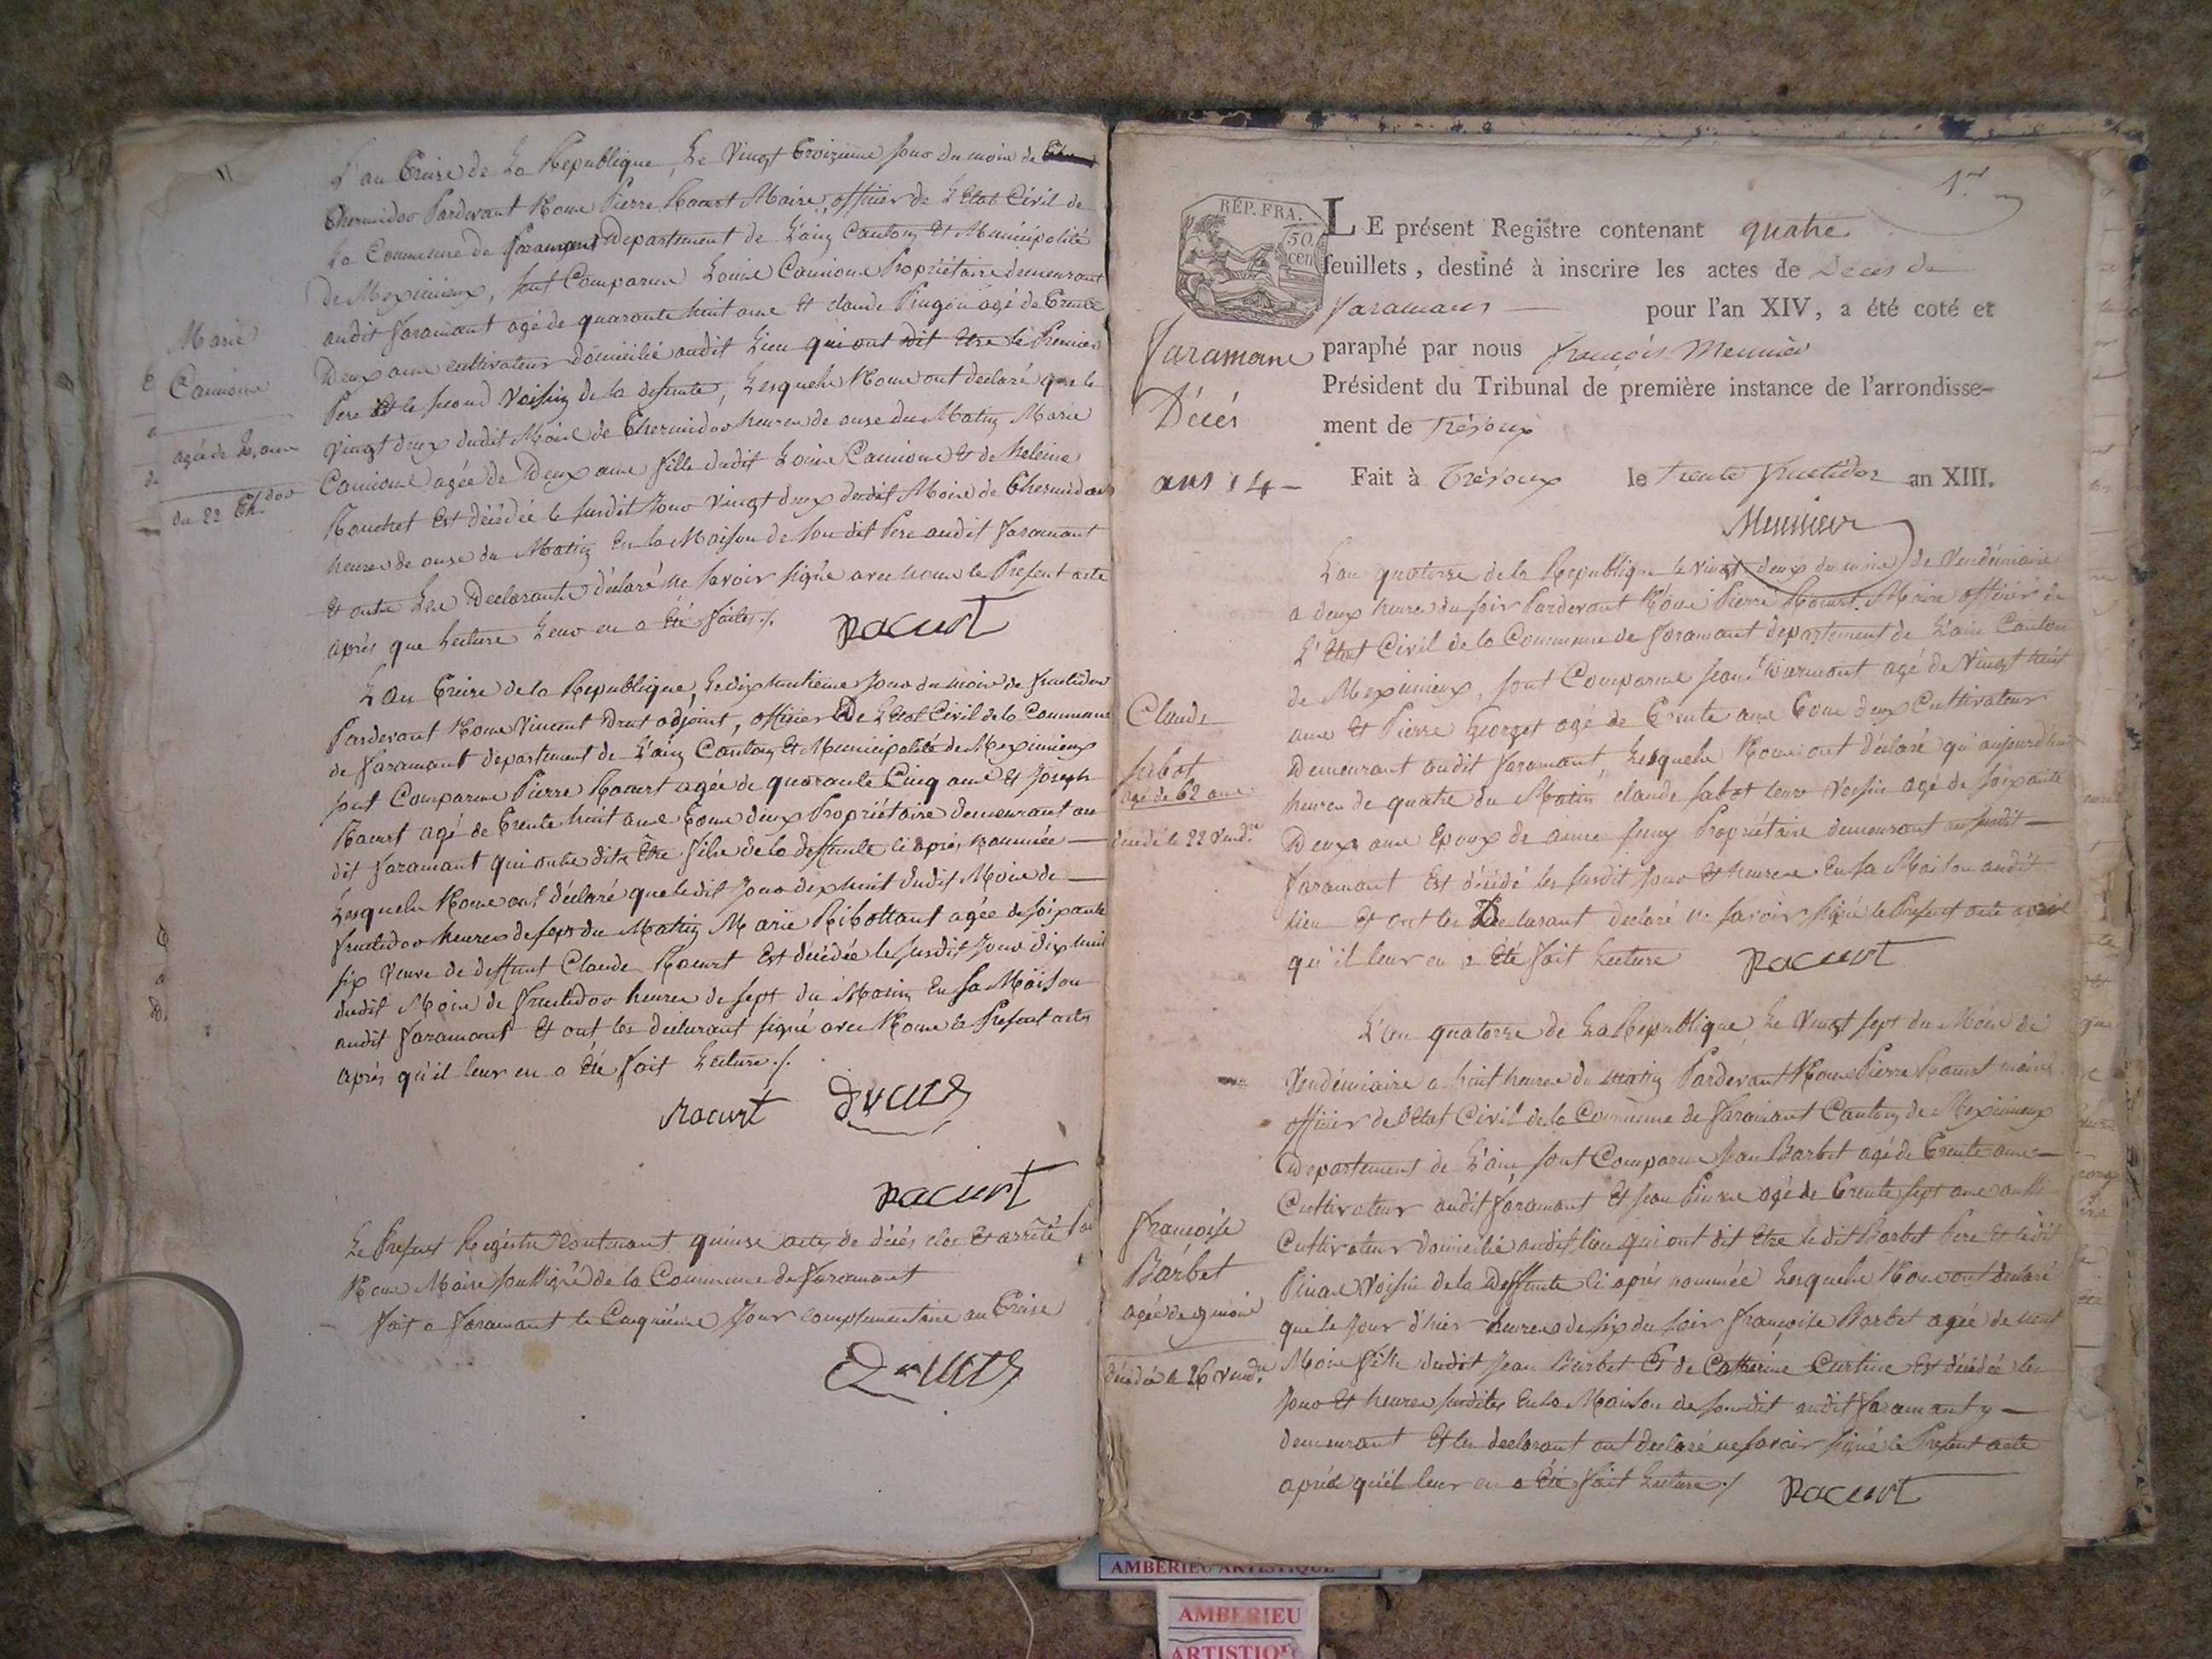 L'an Treize de La Republique, Le Vingt Troizieme Jour du mois de
Thermidor Pardevant Nous Pierre Racurt Maire, officier de L'Etat Civil de
la Commune de faramant Departement de L'ain Canton Et Municipalité
De Meximieux, sont Comparus Louis Propriétaire demeurant
audit faramant agé de quarante huit ans Et claude agé de Trente
Deux ans cultivateur domicilié audit Lieu qui ont dit Etre le Premier
Pere Et le second Voisin de la defunte, Lesquels Nous ont declaré que le
Vingt deux dudit Mois de Thermidor heures de onse du Matin Marie
agée de Deux ans fille dudit Louis Et de heleine
Est décédée le susdit Jour Vingt deux dudit Mois de Thermidor
heures de onse du Matin En la Maison de son dit Pere audit faramant
Et ont Les Declarants déclaré ne savoir signé avec nous le Present acte
après que Lecture Leur en a Été faites ./.
Racurt
Marie
agée de 2 ans
du 22 Th.dor
L'an Treize de la Republique, Le dix huitieme Jour du mois de fructidor
Pardevant Nous Vincent Drut adjoint, officier De L'Etat Civil de la Commune
de faramant departement de L'ain Canton Et Municipalité de Meximieux
sont Comparus Pierre Racurt agée de quarante Cinq ans Et Joseph
Racurt agé de Trente huit ans Tous deux Propriétaire demeurant au
dit faramant qui ont dits Etre fils de la deffunte ci après nommée —
Lesquels Nous ont déclaré que le dit Jour dix huit dudit Mois de —
fructidor heures de sept du Matin Marie Ribottant agée de soixante
six Veuve de deffunt Claude Racurt Est décédée le susdit Jour dix huit
dudit Mois de fructidor heures de sept du Matin En sa Maison
audit faramant Et ont les déclarant signé avec Nous le Present acte
après qu'il leur en a Été fait Lecture ./.
Racurt
Racurt
Le Present Registre Contenant quinse actes de décés clos Et arrêté Par
Nous Maire soussigné de la Commune de faramant
fait a faramant le Cinquième Jour complementaire an Treise
1er
RÉP. FRA.
50
cen
LE présent Registre contenant quatre
feuillets, destiné à inscrire les actes de Deces de
faramans — pour l'an XIV, a été coté et
paraphé par nous françois Meunier
Président du Tribunal de première instance de l'arrondisse-
ment de Trévoux
Fait à Trévoux le trente fructidor an XIII.
Meunier
faramans
Décés
ans 14 —
L'an quatorse de la Republique le vingt deux du mois de Vendémiaire
a deux heures du soir Pardevant Nous Pierre Racurt Maire officier de
L'Etat Civil de la Commune de faramant departement de L'ain Canton
de Meximieux, sont Comparus Jean agé de Vingt huit
ans Et Pierre Georget agé de Trente ans Tous deux Cultivateur
Demeurant audit faramant, Lesquels Nous ont déclaré qu'aujourd'hui
heures de quatre du Matin claude sabot leur Voisin agé de soixante
Deux ans Epoux de anne Propriétaire demeurant au susdit —
faramant Est décédé les susdit Jour Et heures En sa Maison audit
lieu Et ont les Declarant declaré ne savoir signé le Present acte après
qu'il leur en a Été fait Lecture
Racurt
Claude
sabot
agé de 62 ans
décédé le 22 Vend.re
L'an quatorse de La Republique, Le Vingt sept du Mois de
Vendémiaire a huit heures du matin Pardevant Nous Pierre Racurt maire
officier de L'Etat Civil de la Commune de faramant Canton de Meximieux
Departement de L'ain, sont Comparus Jean Barbet agé de Trente ans —
Cultivateur audit faramant Et Jean agé de Trente sept ans aussi
Cultivateur domicilié audit lieu qui ont dit Etre le dit Barbet Pere Et ledit
Voisin de la Deffunte ci après nommée Lesquels Nous ont declaré
que le Jour d'hier heures de six du soir françoise Barbet agée de neuf
Mois fille dudit Jean Barbet Et de Catherine Est décédée les
Jour Et heures susdites En la Maison de son dit audit faramant y —
demeurant Et les declarant ont declaré ne savoir signé le Present acte
après qu'il leur en a Été fait Lecture ./
Racurt
françoise
Barbet
agée de 9 mois
décédée le 26 Vend.re
AMBERIEU ARTISTIQUE
AMBERIEU
ARTISTIQUE